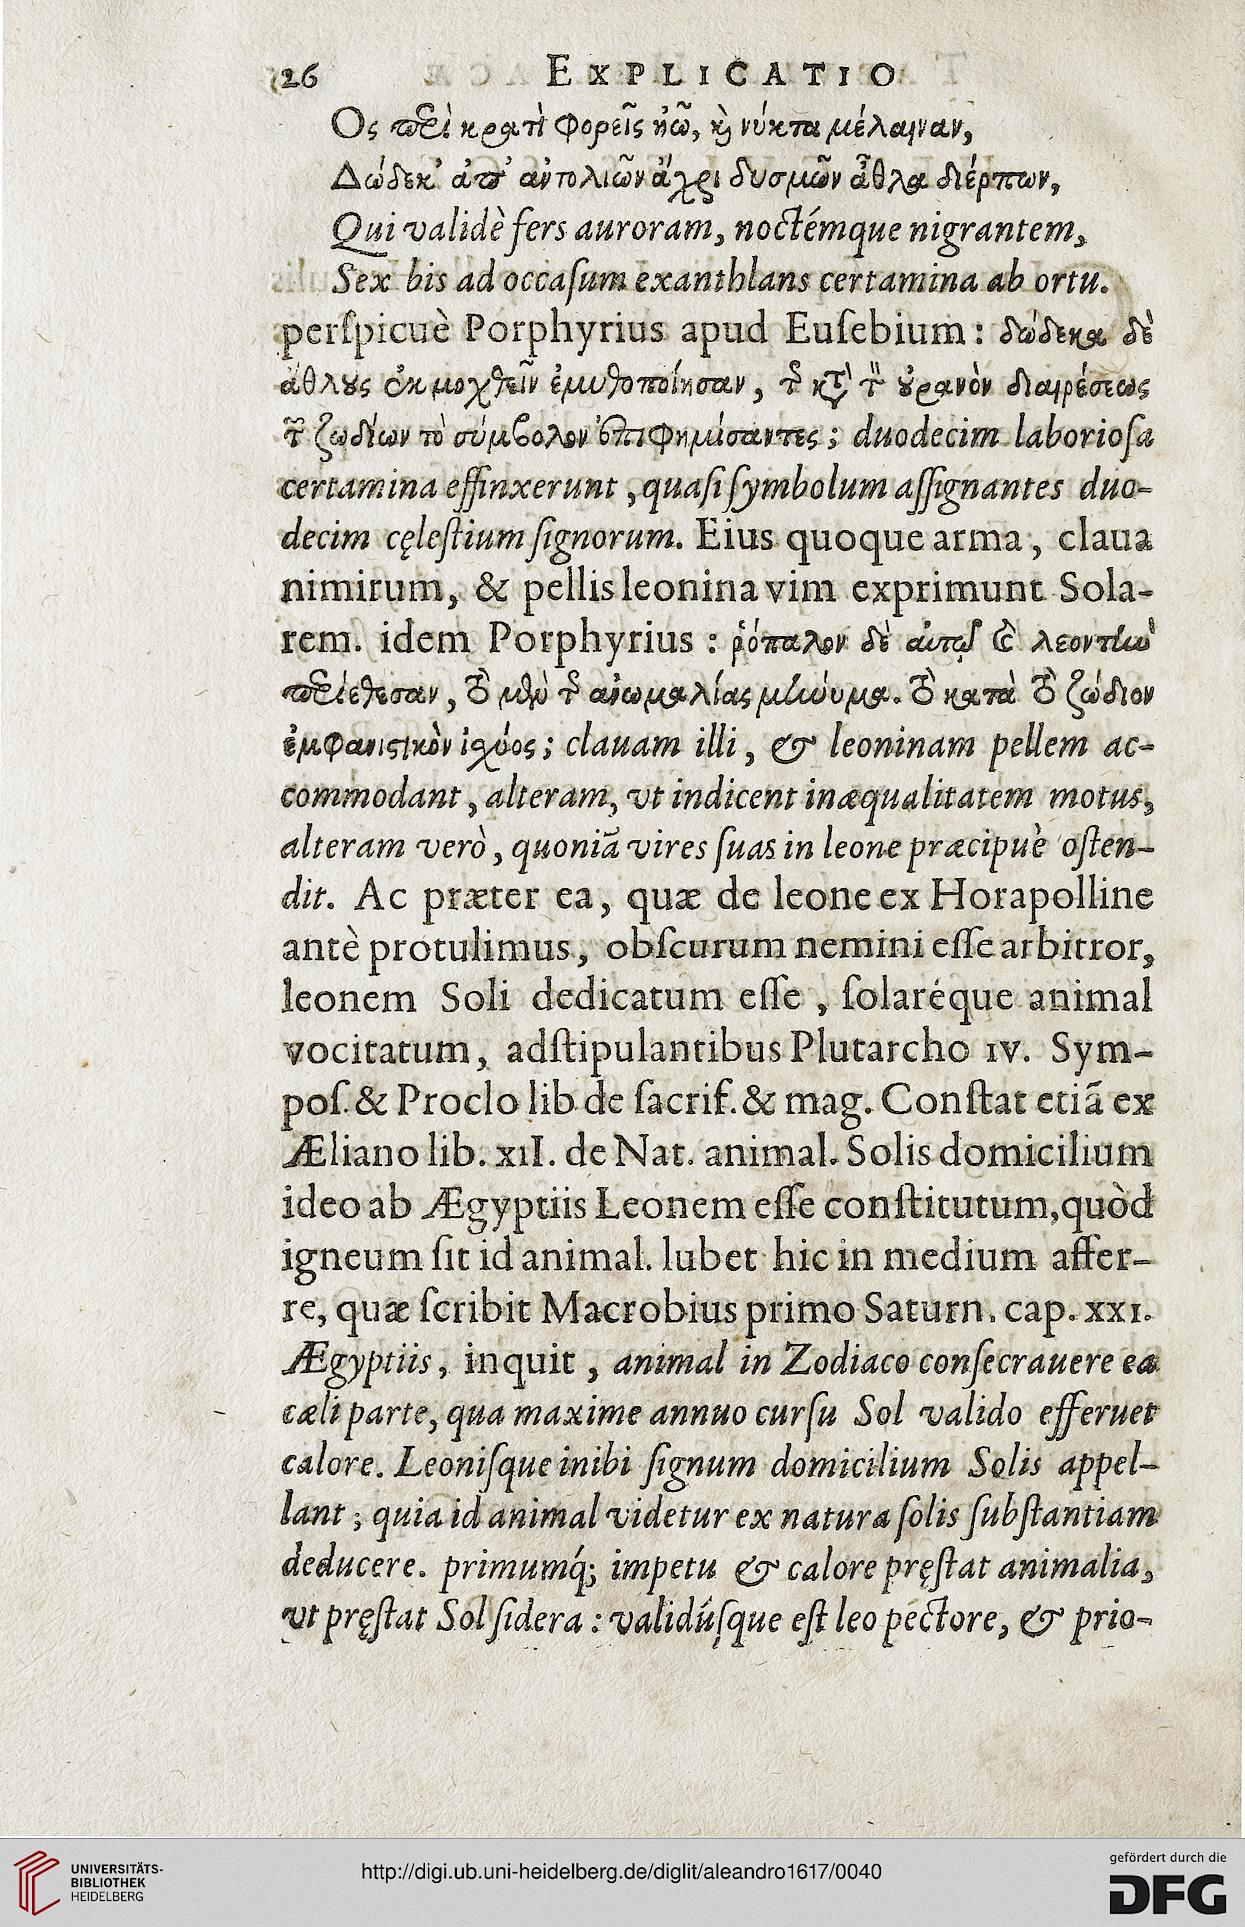 26 EXPLICATIO
Ος περὶ κρατὶ φορεῖς ἠῶ, καὶ νύκτα μέλαιναν,
Δώδεκ' ἀπ' ἀντολιῶν ἄχρι δυσμῶν ἆθλα διέρπων,
Qui validè fers auroram, noctémque nigrantem,
Sex bis ad occaſum exanthlans certamina ab ortu.
perſpicuè Porphyrius apud Euſebium: δώδεκα δὲ
ἄθλους ἐκμοχθεῖν ἐμυθοποίησαν, τῆς κατὰ τὸν οὐρανὸν διαιρέσεως
τῶν ζωδίων τὸ σύμβολον ἐπιφημίσαντες; duodecim laborioſa
certamina effinxerunt, quaſi ſymbolum aſſignantes duo-
decim cęleſtium ſignorum. Eius quoque arma, claua
nimirum, & pellis leonina vim exprimunt Sola-
rem. idem Porphyrius: ῥόπαλον δὲ αὐτῷ καὶ λεοντῆν
περιέθεσαν, τὸ μὲν τῆς ἀνωμαλίας μήνυμα. τὸ κατὰ τὸ ζώδιον
ἐμφανιστικὸν ἰσχύος; clauam illi, & leoninam pellem ac-
commodant, alteram, vt indicent inæqualitatem motus,
alteram verò, quoniā vires ſuas in leone præcipuè oſten-
dit. Ac præter ea, quæ de leone ex Horapolline
antè protulimus, obſcurum nemini eſſe arbitror,
leonem Soli dedicatum eſſe, ſolaréque animal
vocitatum, adſtipulantibus Plutarcho IV. Sym-
poſ. & Proclo lib de ſacrif. & mag. Conſtat etiā ex
Æliano lib. XII. de Nat. animal. Solis domicilium
ideo ab Ægyptiis Leonem eſſe conſtitutum, quòd
igneum ſit id animal. lubet hic in medium affer-
re, quæ ſcribit Macrobius primo Saturn. cap. XXI.
Ægyptiis, inquit, animal in Zodiaco conſecrauere ea
cæli parte, qua maxime annuo curſu Sol valido efferuet
calore. Leoniſque inibi ſignum domicilium Solis appel-
lant; quia id animal videtur ex natura ſolis ſubſtantiam
deducere. primumq́; impetu & calore pręſtat animalia,
vt pręſtat Sol ſidera: validúſque eſt leo pectore, & prio-
UNIVERSITÄTS-
BIBLIOTHEK
HEIDELBERG
http://digi.ub.uni-heidelberg.de/diglit/aleandro1617/0040
gefördert durch die
DFG